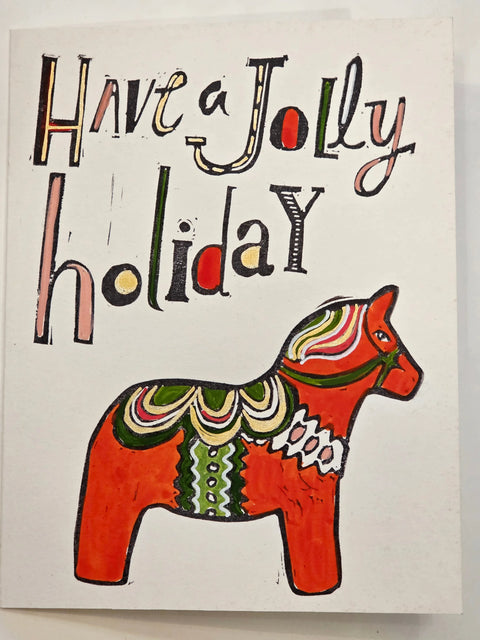 Have a Jolly
holiday